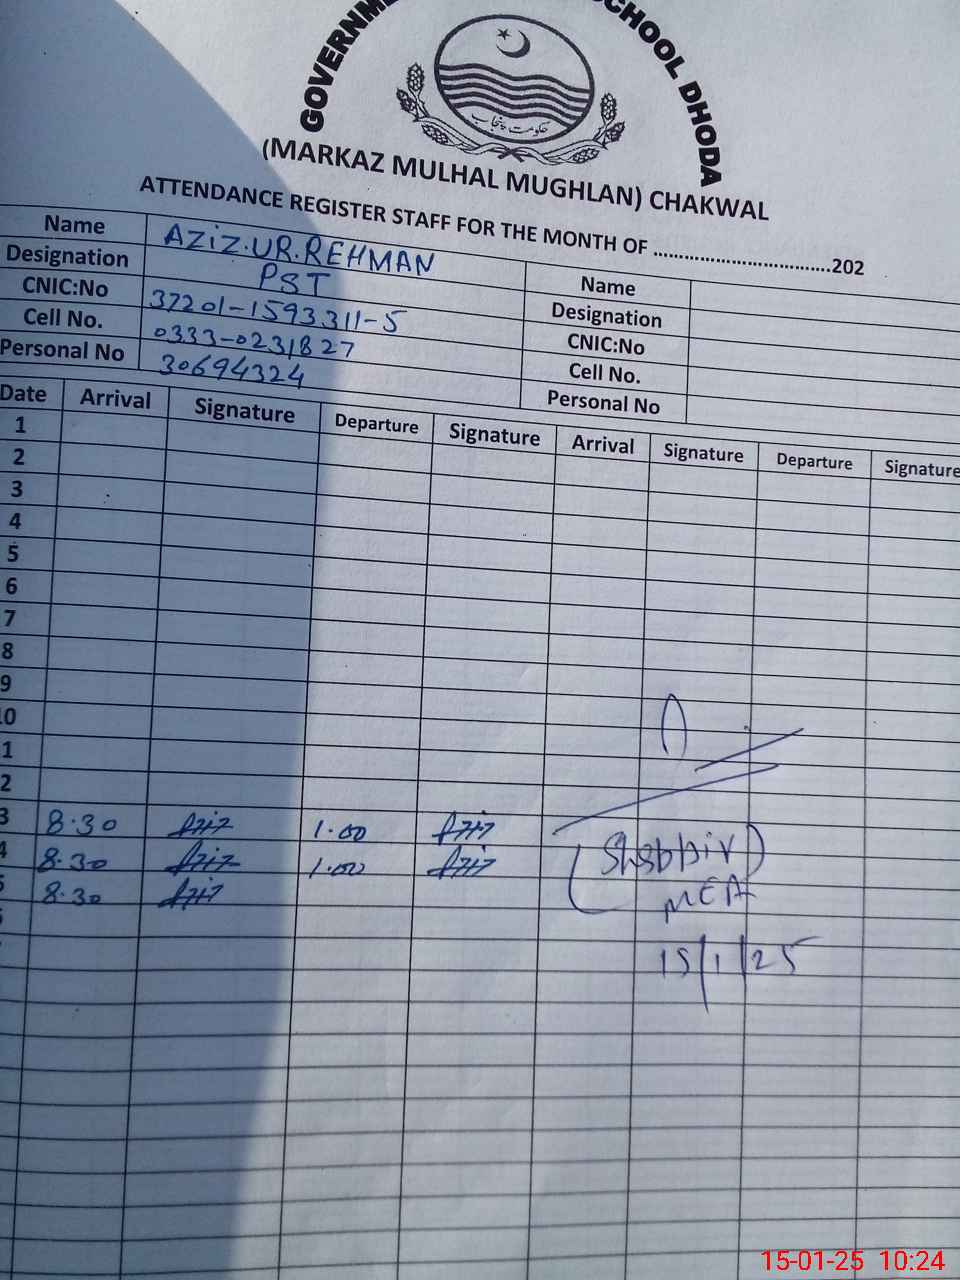 GOVERNM
SCHOOL DHODA
حکومت پنجاب
(MARKAZ MULHAL MUGHLAN) CHAKWAL
ATTENDANCE REGISTER STAFF FOR THE MONTH OF ..................................202
Name AZIZ.UR.REHMAN Name
Designation PST Designation
CNIC:No 37201-1593311-5 CNIC:No
Cell No. 0333-0231827 Cell No.
Personal No 30694324 Personal No
Date Arrival Signature Departure Signature Arrival Signature Departure Signature
1
2
3
4
5
6
7
8
9
10
1
2
3 8.30 Aziz 1.00 Aziz
4 8.30 Aziz 1.00 Aziz
5 8.30 Aziz
(Shabbir)
MEA
15/1/25
15-01-25 10:24